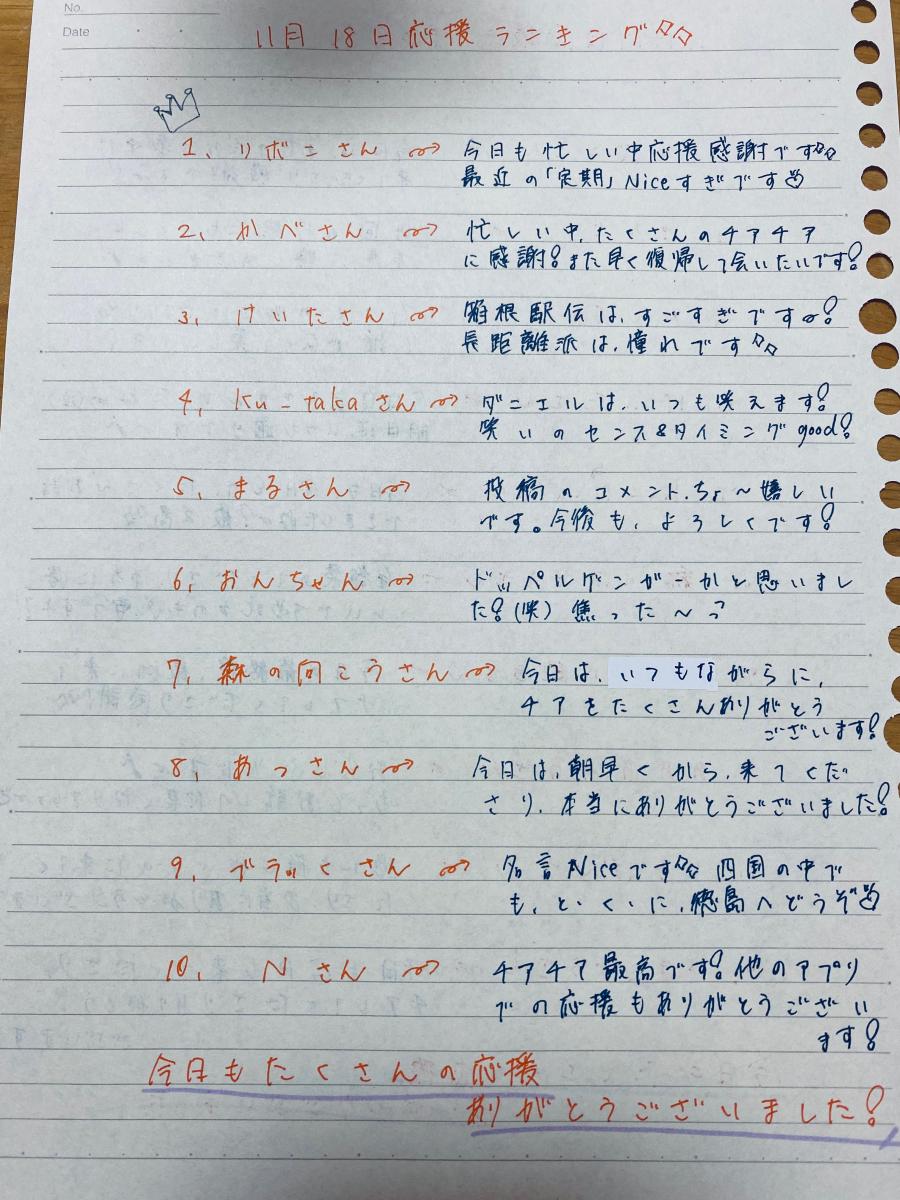 No.
Date
11月18日応援ランキング
1、リボニさん 今日も忙しい中応援感謝です
最近の「定期」Niceすぎです
2、かべさん 忙しい中、たくさんのチアチア
に感謝!また早く復帰して会いたいです!
3、けいたさん 箱根駅伝は、すごすぎです!
長距離派は、憧れです
4、ku-takaさん ダニエルは、いつも咲えます!
咲いのセンス&タイミングgood!
5、まるさん 投稿のコメント、ちょ〜嬉しい
です。今後も、よろしくです!
6、おんちゃん ドッペルゲンガーかと思いまし
た!(咲)焦った〜っ
7、森の向こうさん 今日は、いつもながらに、
チアをたくさんありがとう
ございます!
8、あっさん 今日は、朝早くから、来てくだ
さり、本当にありがとうございました!
9、ブラッくさん 名言Niceです 四国の中で
も、とくいに、徳島へどうぞ
10、Nさん チアチア最高です!他のアプリ
での応援もありがとうござい
ます!
今日もたくさんの応援
ありがとうございました!